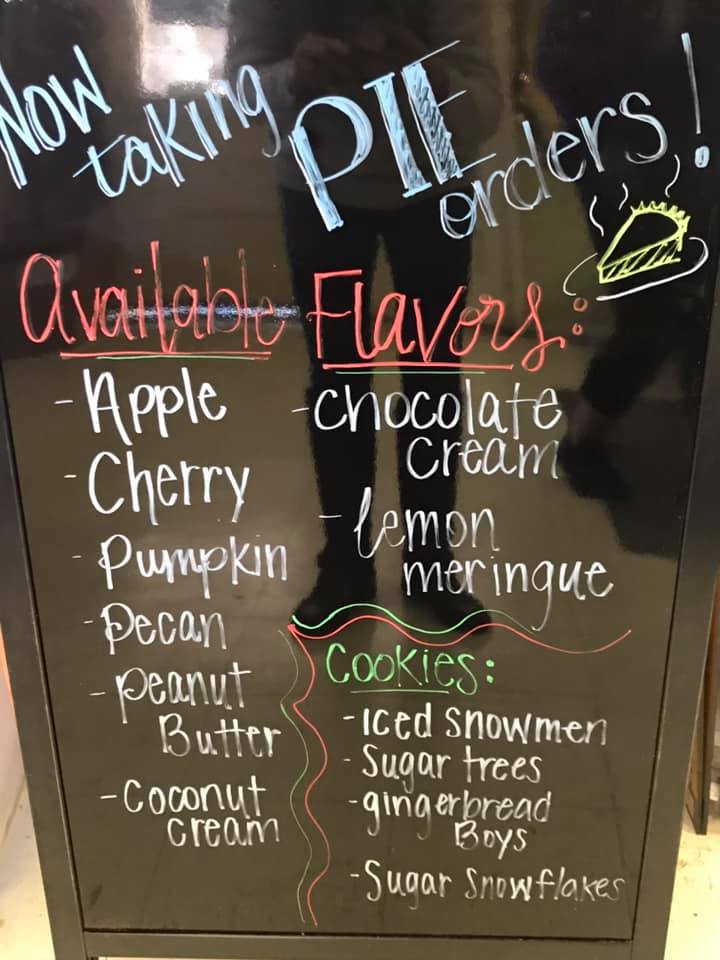 Now taking PIE orders!
Available Flavors:
- Apple
- Cherry
- Pumpkin
- Pecan
- Peanut
Butter
- Coconut
cream
- Chocolate
Cream
- lemon
meringue
Cookies:
- Iced Snowmen
- Sugar trees
- gingerbread
Boys
- Sugar Snowflakes